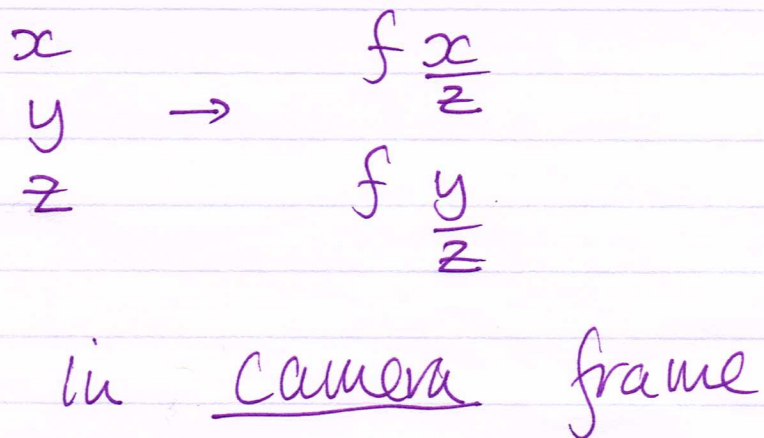 x f x/z
y →
z f y/z
in camera frame